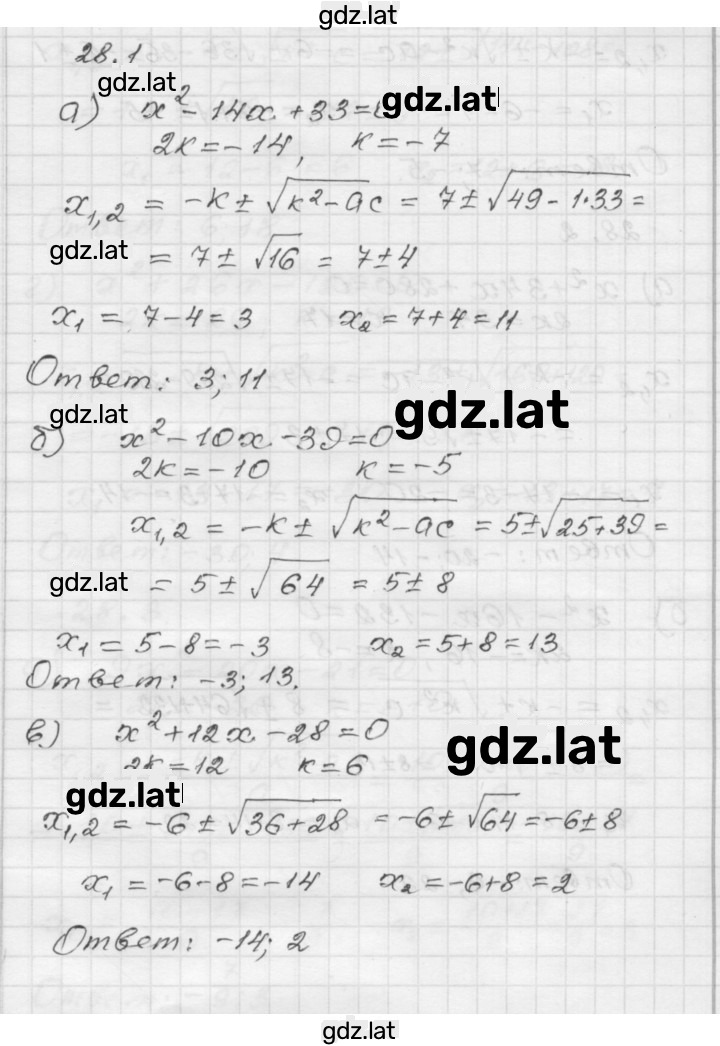 gdz.lat
28.1
gdz.lat
а) x² - 14x + 33 = 0 gdz.lat
2к = -14, к = -7
x₁,₂ = -к ± √(к² - ac) = 7 ± √(49 - 1·33) =
gdz.lat = 7 ± √16 = 7 ± 4
x₁ = 7 - 4 = 3 x₂ = 7 + 4 = 11
Ответ: 3; 11
gdz.lat gdz.lat
б) x² - 10x - 39 = 0
2к = -10 к = -5
x₁,₂ = -к ± √(к² - ac) = 5 ± √(25 + 39) =
gdz.lat = 5 ± √64 = 5 ± 8
x₁ = 5 - 8 = -3 x₂ = 5 + 8 = 13
Ответ: -3; 13.
в) x² + 12x - 28 = 0
gdz.lat
2к = 12 к = 6
gdz.lat
x₁,₂ = -6 ± √(36 + 28) = -6 ± √64 = -6 ± 8
x₁ = -6 - 8 = -14 x₂ = -6 + 8 = 2
Ответ: -14; 2
gdz.lat